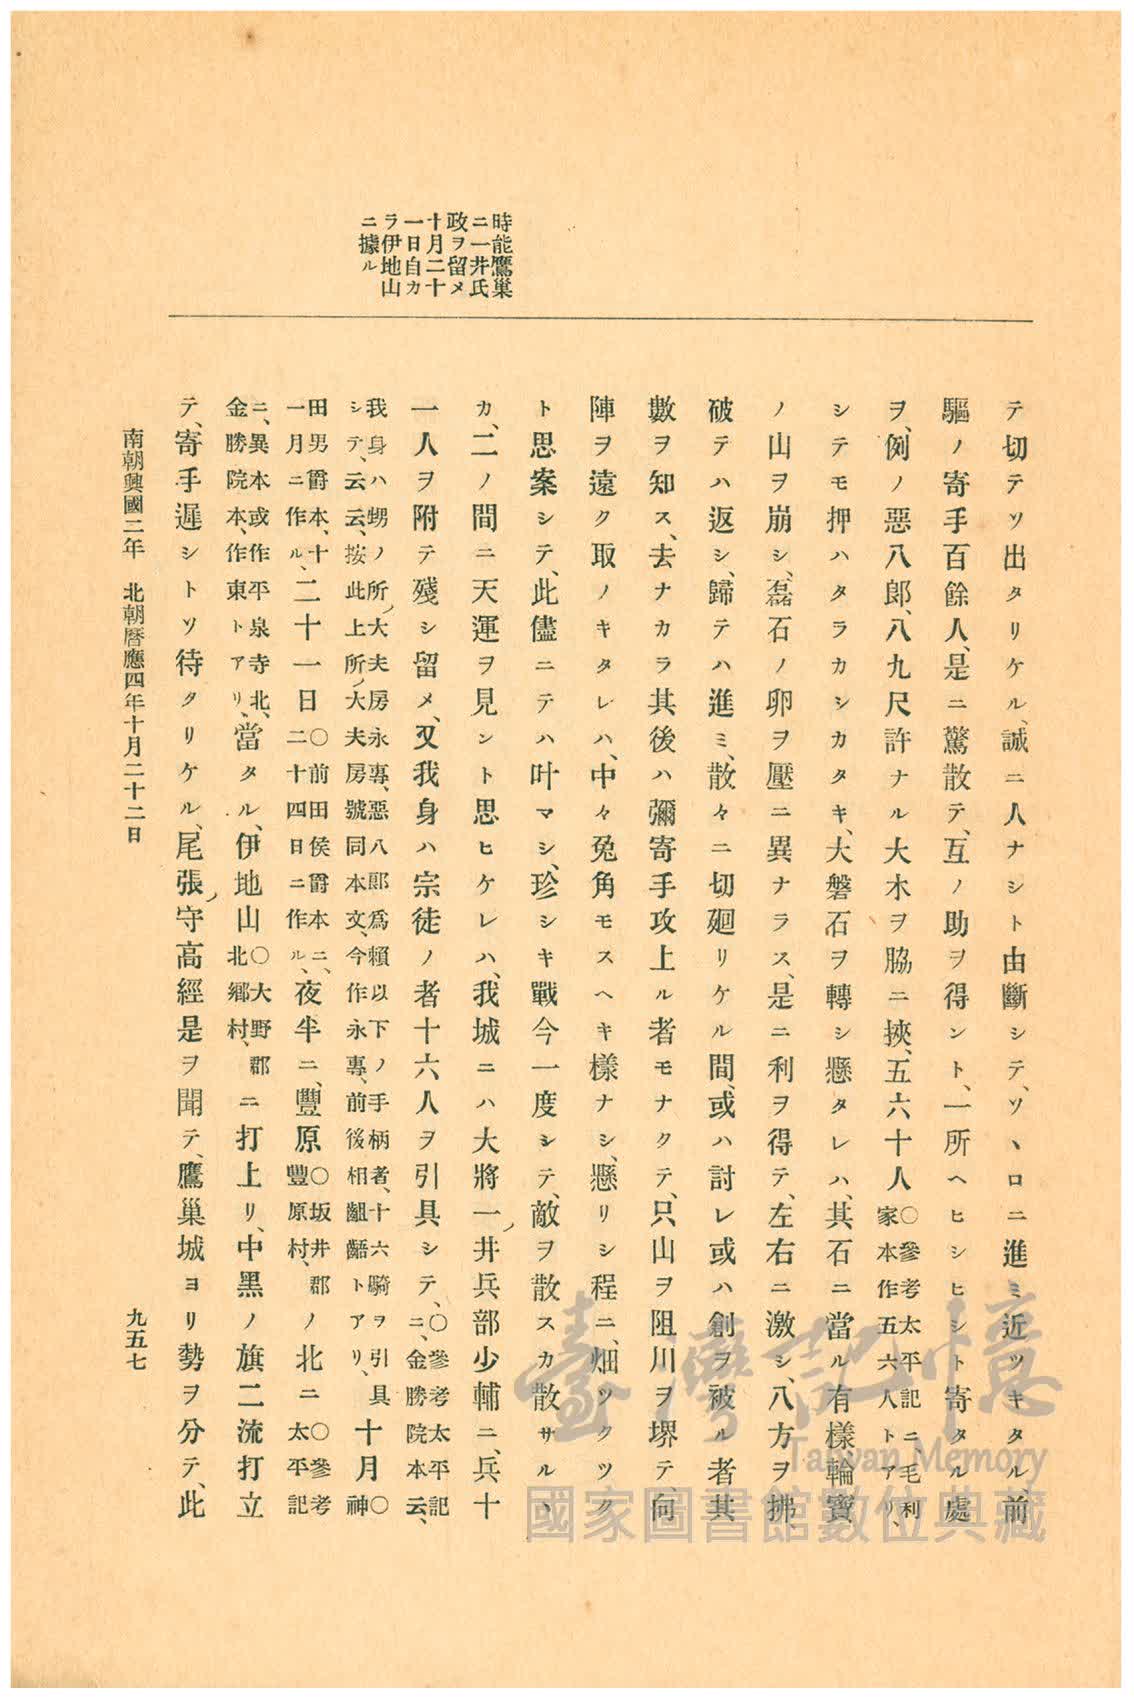 時能鷹巣
ニ一井氏
政ヲ留メ
十月二十
一日自カ
ラ伊地山
ニ據ル
テ切テソ出タリケル、誠ニ人ナシト由斷シテ、ソヽロニ進ミ近ツキタル、前
驅ノ寄手百餘人、是ニ驚散テ、互ノ助ヲ得ント、一所ヘヒシヒシト寄タル處
ヲ、例ノ惡八郎、八九尺許ナル大木ヲ脇ニ挾、五六十人〇參考太平記ニ毛利家本作五六人トアリ、
シテモ押ハタラカシカタキ、大磐石ヲ轉シ懸タレハ、其石ニ當ル有樣輪寶
ノ山ヲ崩シ、磊石ノ卵ヲ壓ニ異ナラス、是ニ利ヲ得テ、左右ニ激シ、八方ヲ拂、
破テハ返シ、歸テハ進ミ、散々ニ切廻リケル間、或ハ討レ或ハ創ヲ被ル者其
數ヲ知ス、去ナカラ其後ハ彌寄手攻上ル者モナクテ、只山ヲ阻川ヲ堺テ、向
陣ヲ遠ク取ノキタレハ、中々兔角モスヘキ樣ナシ、懸リシ程ニ、畑ツクツク
ト思案シテ、此儘ニテハ叶マシ、珍シキ戰今一度シテ、敵ヲ散スカ散サルヽ
カ、二ノ間ニ天運ヲ見ント思ヒケレハ、我城ニハ大將一井兵部少輔ニ、兵十
一人ヲ附テ殘シ留メ、又我身ハ宗徒ノ者十六人ヲ引具シテ、〇參考太平記ニ、金勝院本云、
我身ハ甥ノ所大夫房永專、惡八郎爲賴以下ノ手柄者、十六騎ヲ引具シテ、云云、按此上所大夫房號同本文、今作永專、前後相齟齬トアリ、十月〇神
田男爵本、十一月ニ作ル、二十一日〇前田侯爵本ニ、二十四日ニ作ル、夜半ニ、豐原〇坂井郡豐原村、ノ北ニ〇參考太平記
ニ、異本或作平泉寺北、金勝院本、作東トアリ、當タル、伊地山〇大野郡北鄕村、ニ打上リ、中黑ノ旗二流打立
テ、寄手遲シトソ待タリケル、尾張守高經是ヲ聞テ、鷹巣城ヨリ勢ヲ分テ、此
南朝興國二年　北朝曆應四年十月二十二日
九五七
臺灣記憶
Taiwan Memory
國家圖書館數位典藏